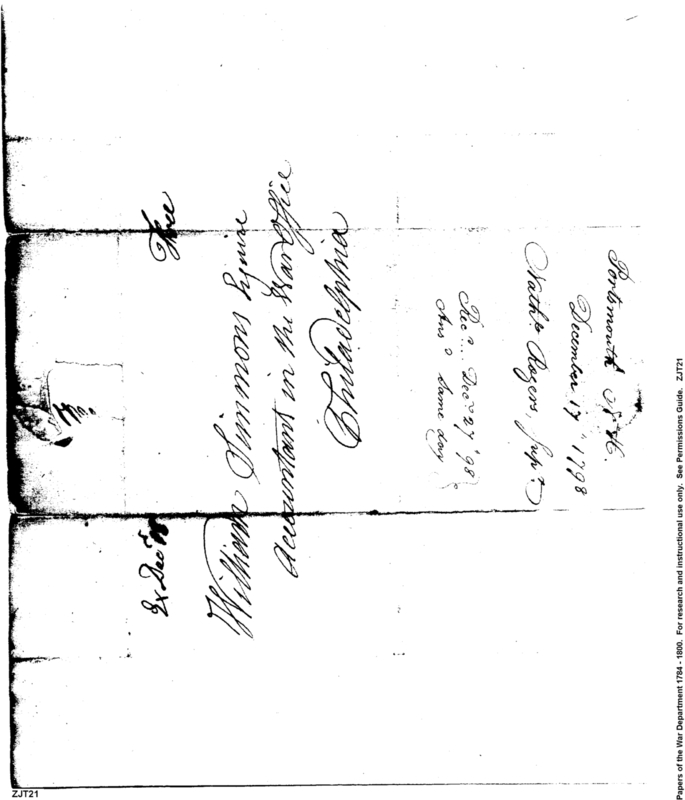 Free
William Simmons Esquire
Accountant in the War Office
Philadelphia
Portsmouth N.H.
December 17th 1798
Nathl. Rogers, Supr.
Rec'd. Decr. 27th 98
Ans'd same day
Papers of the War Department 1784 - 1800. For research and instructional use only. See Permissions Guide. ZJT21
ZJT21